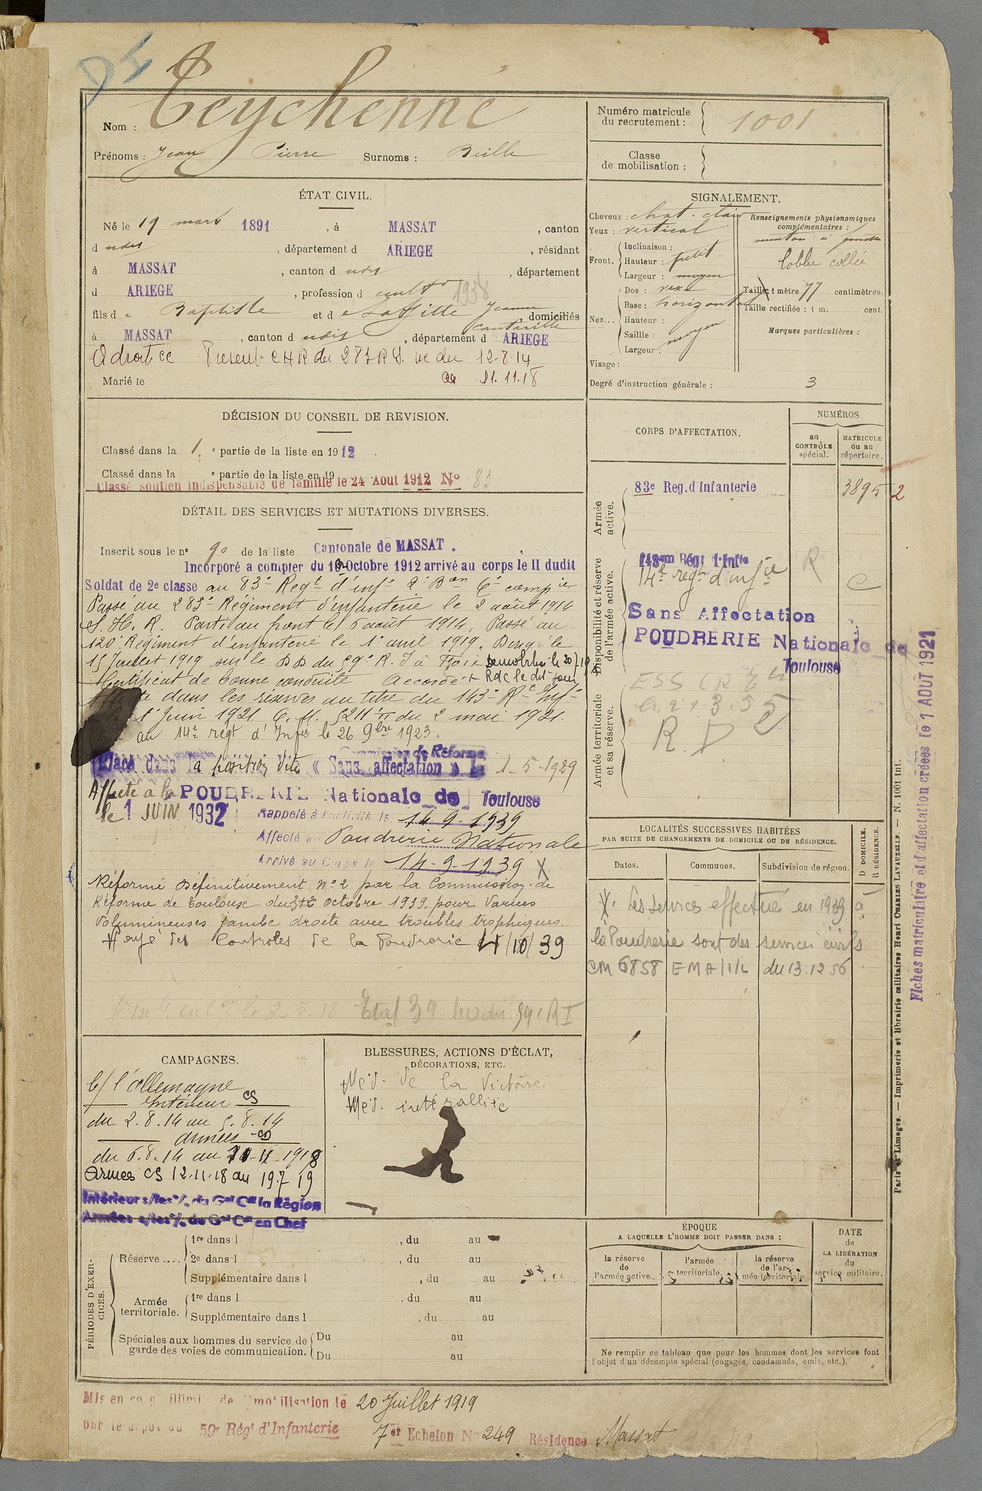 Nom : Teychenné
Prénoms : Jean Pierre Surnoms : Beille
Numéro matricule du recrutement : 1001
Classe de mobilisation :
ÉTAT CIVIL.
Né le 19 mars 1891, à MASSAT, canton
d udit, département d ARIEGE, résidant
à MASSAT, canton d udit, département
d ARIEGE, profession d cult 1938
fils d e Baptiste et d e Laffitte Jeanne domiciliés
à MASSAT, canton d udit, département d ARIEGE
A droit CC Présent CHR du 283 RI. du 12-8-14
Marié le au 11.11.18
SIGNALEMENT.
Cheveux : chat. clair
Yeux : vertical
Front. Inclinaison :
Hauteur : petit
Largeur : moyen
Nez... Dos : rexe
Base : horizontal
Hauteur :
Saillie : moyen
Largeur :
Visage :
Renseignements physionomiques complémentaires :
menton à
Lobbe collée
Taille 1 mètre 77 centimètres.
Taille rectifiée : 1 m. cent.
Marques particulières :
Degré d'instruction générale : 3
DÉCISION DU CONSEIL DE REVISION.
Classé dans la 1. e partie de la liste en 1912
Classé dans la e partie de la liste en 19
Classé soutien indispensable de famille le 24 Aout 1912 No 83
DÉTAIL DES SERVICES ET MUTATIONS DIVERSES.
Inscrit sous le n° 90 de la liste Cantonale de MASSAT.
Incorporé a compter du 10 Octobre 1912 arrivé au corps le 11 dudit
Soldat de 2e classe au 83e Regt d'infie 2e Bon 6e compie
Passé au 283e Régiment d'infanterie le 2 août 1914
S. H. R. Parti au front le 6 août 1914, Passé au
120e Régiment d'infanterie le 1er avril 1919. Dirigé le
15 Juillet 1919 sur le DD du 59e R.I à Foix Démobilisé le 20/7/19
Certificat de bonne conduite Accordé Rdc le dit jour
dans les réserves au titre du 143e Rt Infie
1er Juin 1921 C. M. 5211 du 2 mai 1921.
au 14e régt d'Infie le 26 9bre 1923.
Placé dans la position dite « Sans affectation » Le 1-5-1929
de Réforme
Affecté à la POUDRERIE Nationale de Toulouse
le 1 JUIN 1932
Rappelé à l'activité le 14-9-1939
Affecté à Poudrerie Nationale
Arrivé au Corps le 14-9-1939 X
Réformé Définitivement n° 2 par la Commission de
Réforme de Toulouse du octobre 1939, pour Varices
volumineuses jambe droite avec troubles trophiques.
Rayé des Controles de la Poudrerie 14/10/39
CORPS D'AFFECTATION.
NUMÉROS
au CONTRÔLE spécial.
MATRICULE ou au répertoire.
Armée active.
83e Reg. d Infanterie 3895 2
Disponibilité et réserve de l'armée active.
143em Régt d'Infie
14e régt d'infie R C
Sans Affectation
POUDRERIE Nationale de Toulouse
Armée territoriale et sa réserve.
R. D
Fiches matriculaire et d'affectation créées le 1 AOUT 1921
LOCALITÉS SUCCESSIVES HABITÉES
PAR SUITE DE CHANGEMENTS DE DOMICILE OU DE RÉSIDENCE.
Dates. Communes. Subdivision de région. D DOMICILE. R RÉSIDENCE.
X. Les services effectués en 1939 à
la Poudrerie sont des services civils
CM 6858 EMA/1/L du 13.12.56
Paris et Limoges. — Imprimerie et librairie militaires Henri CHARLES-LAVAUZELLE. — N. 1001 int.
CAMPAGNES.
C/ l'allemagne
Intérieur CS
du 2.8.14 au 5.8.14
armées CD
du 6.8.14 au 11-11-1918
Armées CS 12-11-18 au 19 7 19
Intérieur s/les % du Gal Ct la Région
Armées s/les % du Gal Ct en Chef
BLESSURES, ACTIONS D'ÉCLAT, DÉCORATIONS, ETC.
Med. de la Victoire
Med. interalliée
PÉRIODES D'EXERCICES.
Réserve.... 1re dans l , du au
2e dans l , du au
Supplémentaire dans l , du au
Armée territoriale. 1re dans l , du au
Supplémentaire dans l , du au
Spéciales aux hommes du service de garde des voies de communication. Du au
Du au
ÉPOQUE
A LAQUELLE L'HOMME DOIT PASSER DANS :
la réserve de l'armée active.
l'armée territoriale.
la réserve de l'armée territoriale.
DATE de LA LIBÉRATION du service militaire.
Ne remplir ce tableau que pour les hommes dont les services font l'objet d'un décompte spécial (engagés, condamnés, omis, etc.).
Mis en congé illimité de démobilisation le 20 Juillet 1919
par le dépôt du 59e Régt d'Infanterie 7er Echelon No 249 Résidence Massat